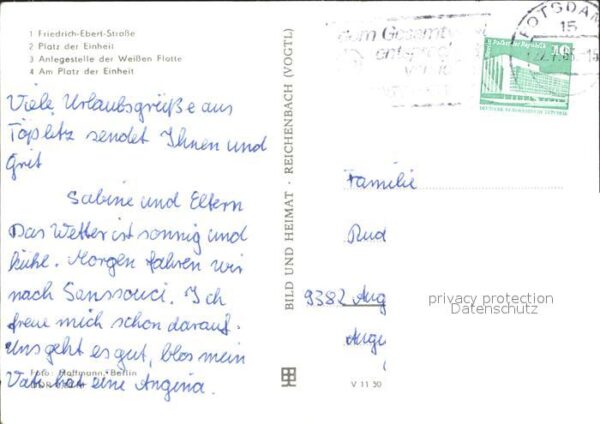 1 Friedrich-Ebert-Straße
2 Platz der Einheit
3 Anlegestelle der Weißen Flotte
4 Am Platz der Einheit
Viele Urlaubsgrüße aus
Töplitz sendet Ihnen und
Grit
Sabine und Eltern
Das Wetter ist sonnig und
kühl. Morgen fahren wir
nach Sanssouci. Ich
freue mich schon darauf.
Uns geht es gut, blos mein
Vati hat eine Angina.
Foto: Hoffmann, Berlin
BILD UND HEIMAT · REICHENBACH (VOGTL)
POTSDAM
15
zum Gesamt
10
Palast der Republik
Familie
Rud
9382 Aug
Aug
privacy protection
Datenschutz
V 11 50